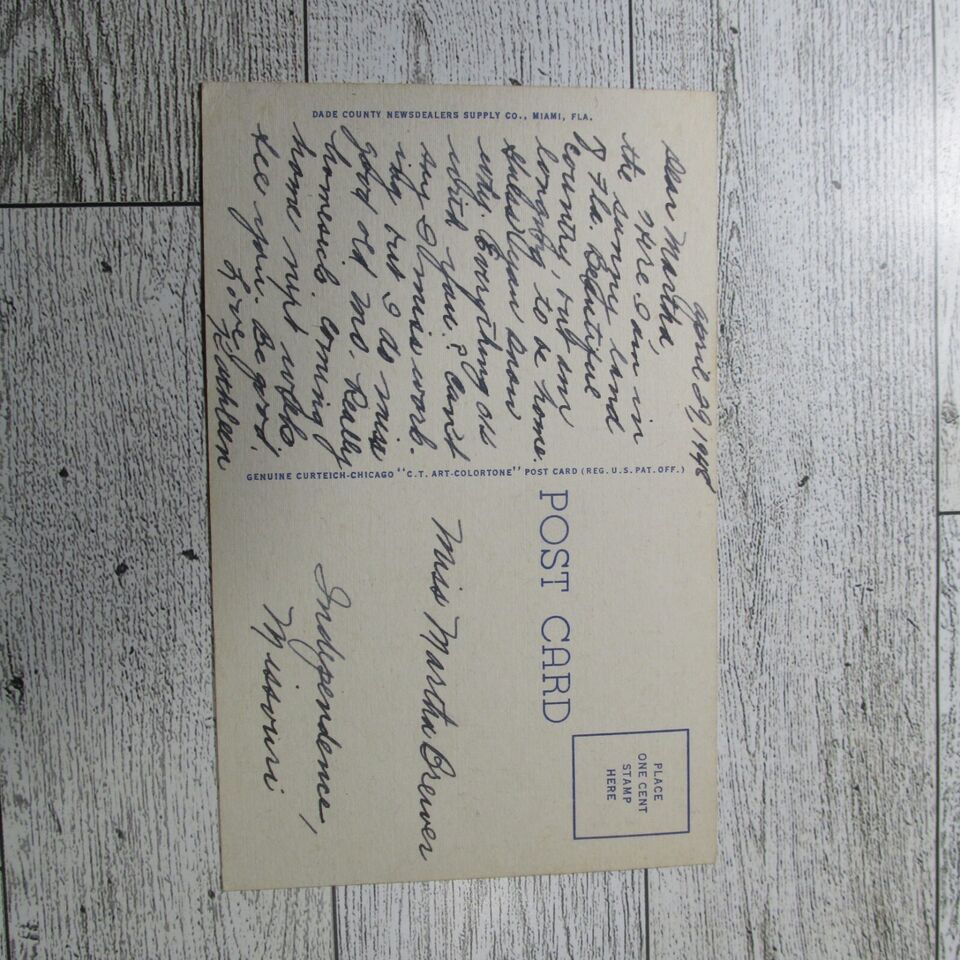 DADE COUNTY NEWSDEALERS SUPPLY CO., MIAMI, FLA.
April 29, 1948
Dear Martha,
Here I am in
the sunny land
of Fla. Beautiful
country, but im
longing to be home.
Guess you know
why. Everything ok
with you? Can't
say I miss work
but I do miss
good old Mo. Really
homesick. coming
home next week.
See you. Be good.
Love,
Kathleen
GENUINE CURTEICH-CHICAGO "C.T. ART-COLORTONE" POST CARD (REG. U.S. PAT. OFF.)
POST CARD
PLACE
ONE CENT
STAMP
HERE
Miss Martha Brewer
Independence,
Missouri